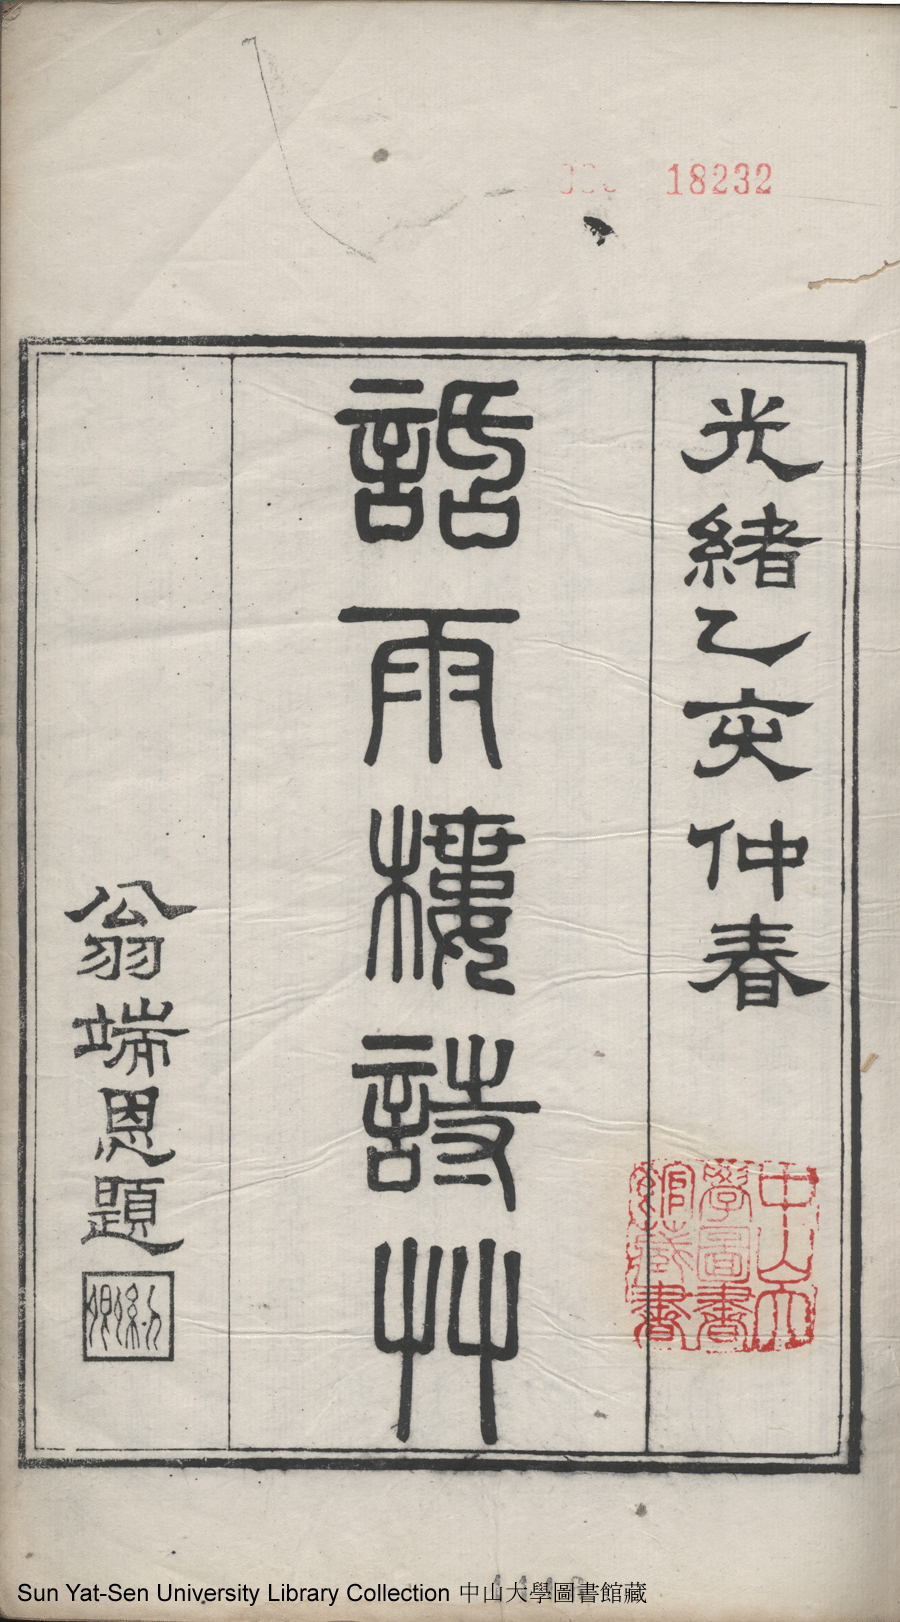 18232
光緒乙亥仲春
話雨樓詩艸
翁端恩題
紉卿
中山大
學圖書
館藏書
Sun Yat-Sen University Library Collection 中山大學圖書館藏